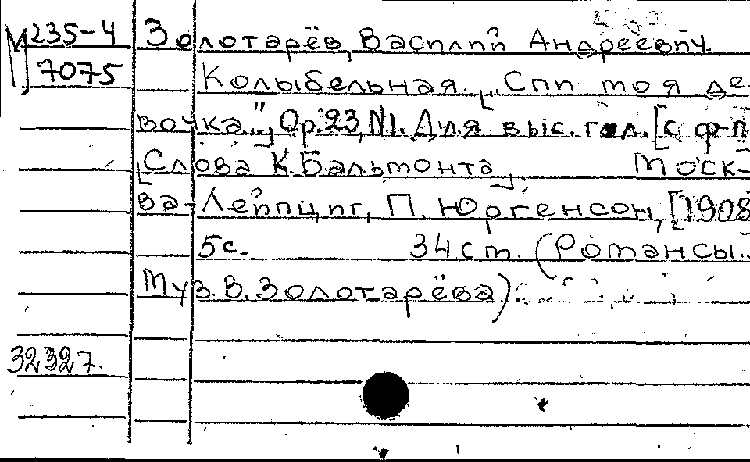 М 235-4 Золотарёв, Василий Андреевич.
7075 Колыбельная. „Спи моя де-
вочка...", Op. 23, N1. Для выс. гол. [с ф-п
[Слова К. Бальмонта]. Моск-
ва-Лейпциг, П. Юргенсон, [1908
5 с. 34 см. (Романсы..
Муз. В. Золотарёва).
32327.